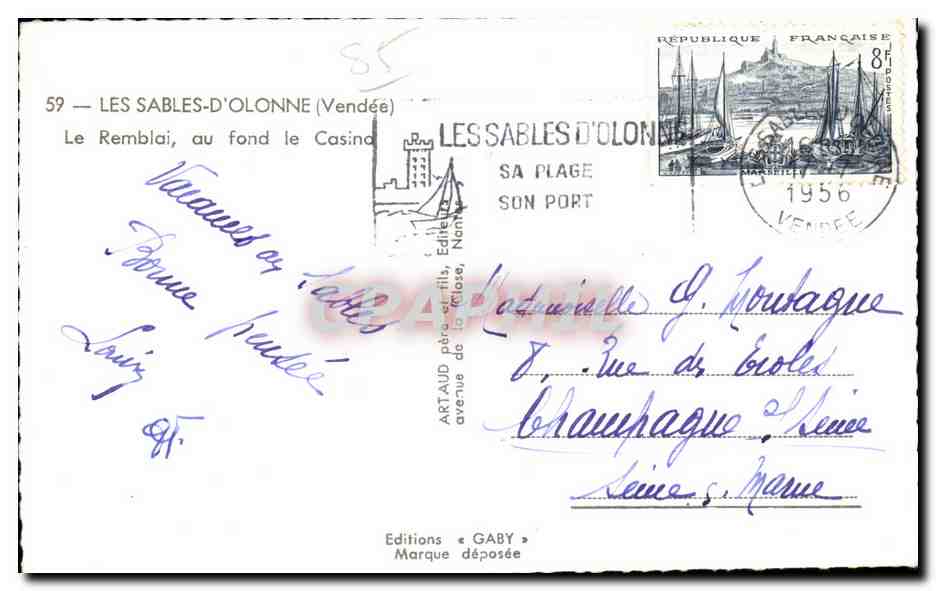 85
59 — LES SABLES-D'OLONNE (Vendée)
Le Remblai, au fond le Casino
RÉPUBLIQUE FRANÇAISE
8F
POSTES
MARSEILLE
LES SABLES D'OLONNE
SA PLAGE
SON PORT
1956
VENDEE
Vacances aux Sables
Bonne pensée
ARTAUD père et fils, Editeurs
avenue de la Close, Nantes
Mademoiselle G. Montagne
8, Rue des Ecoles
Champagne s/ Seine
Seine & Marne
CPAPHIL
Editions « GABY »
Marque déposée